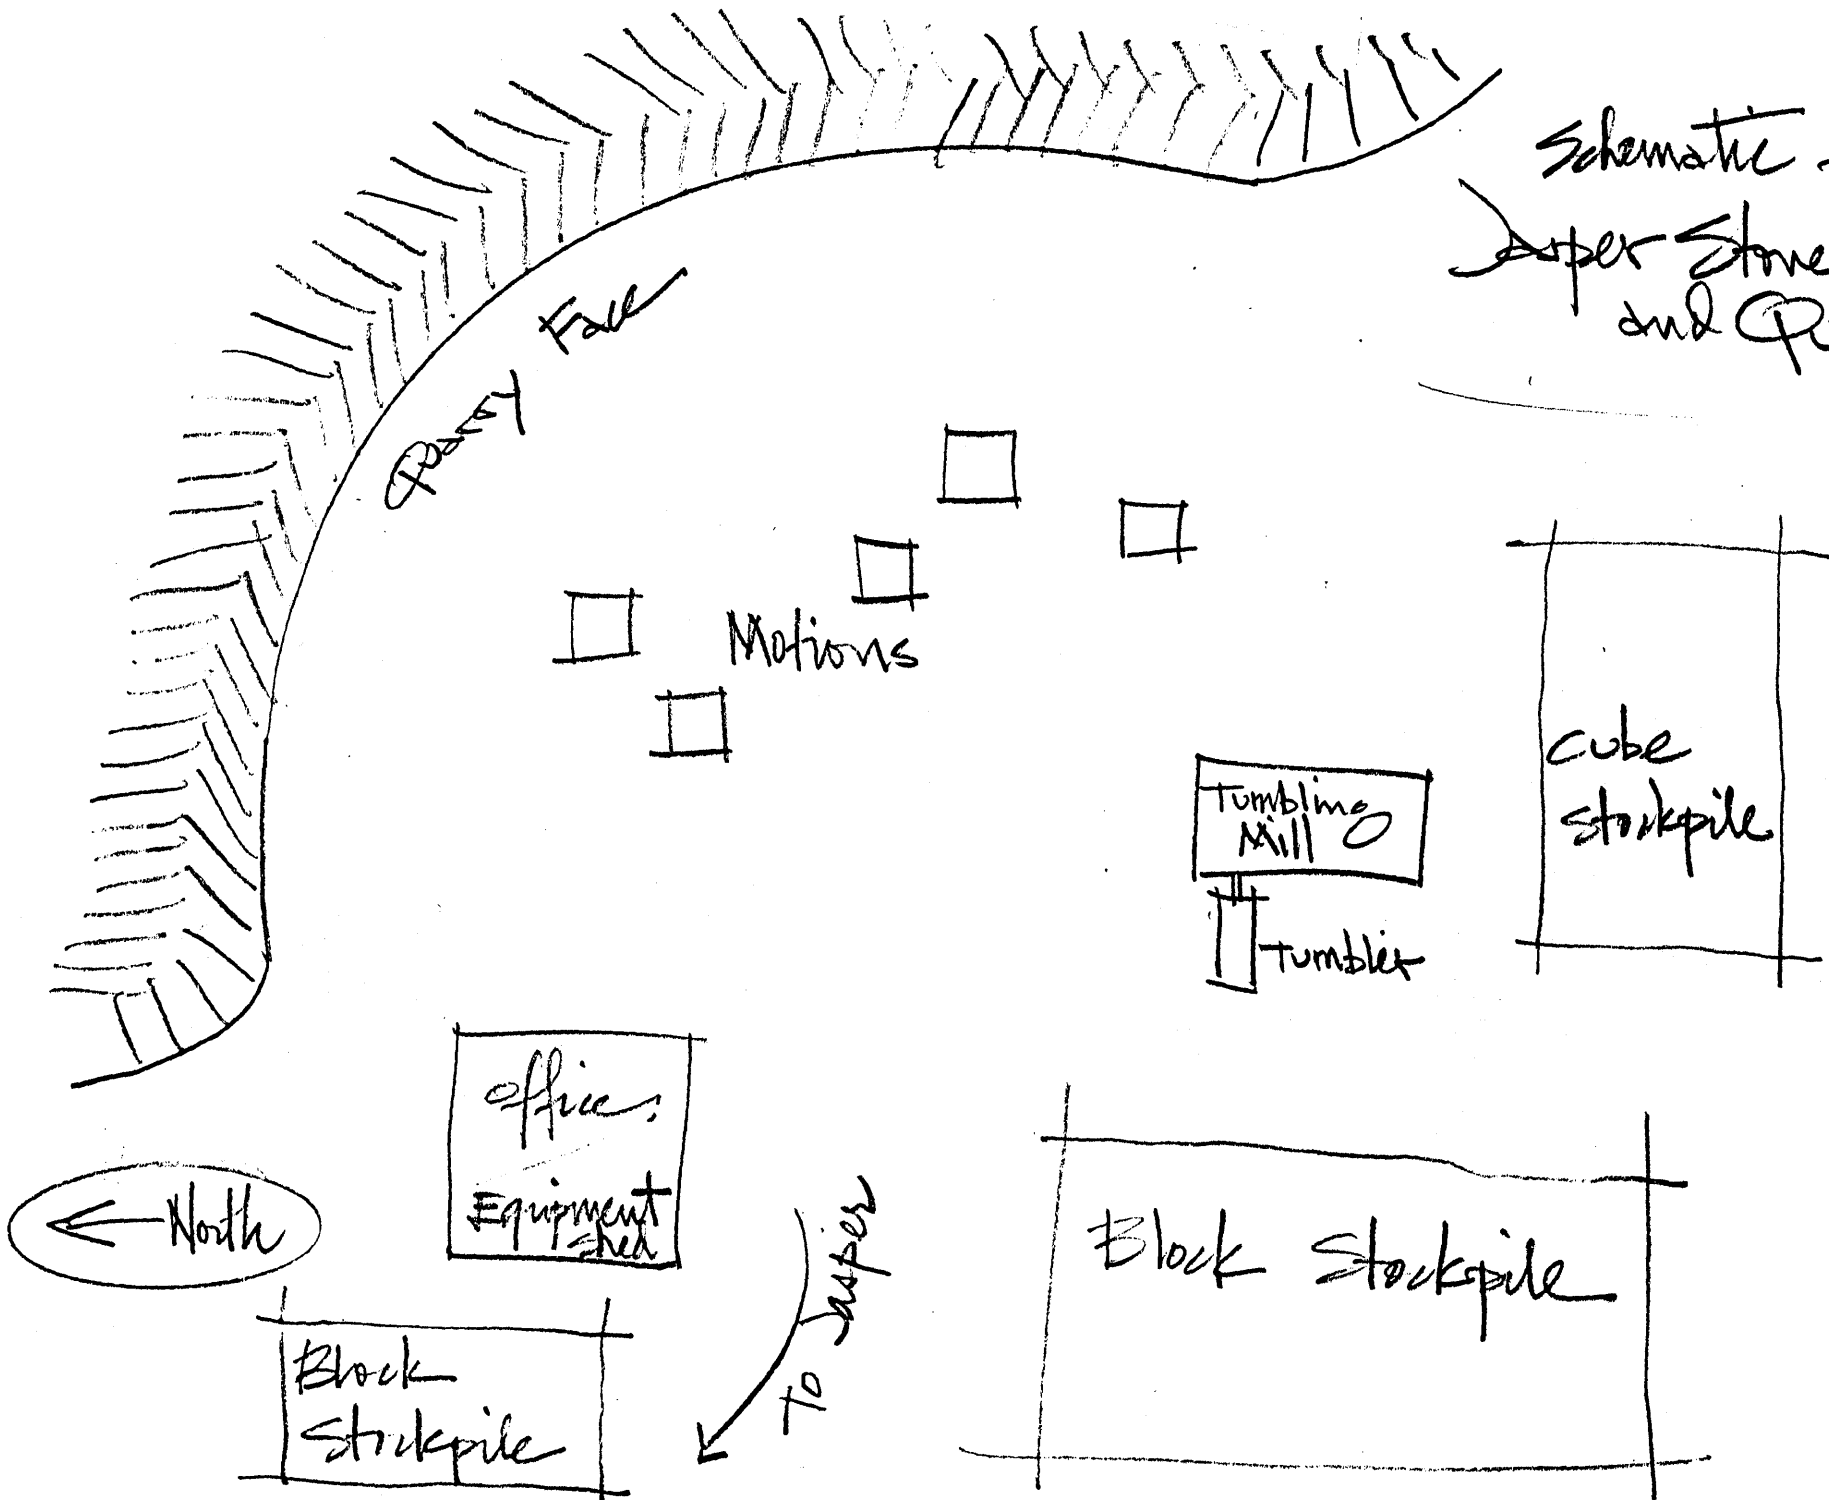 Schematic -
Jasper Stone
and Qu
Quarry Face
Motions
Tumbling
Mill
Tumbler
Cube
Stockpile
Office.
Equipment
Shed
North
To Jasper
Block Stockpile
Block
Stockpile